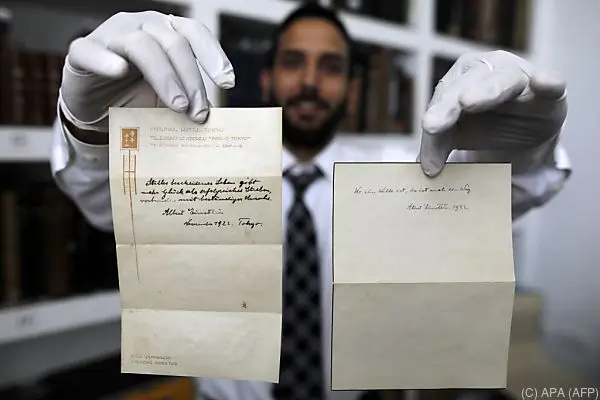 IMPERIAL HOTEL TOKYO
Stilles bescheidenes Leben gibt
mehr Glück als erfolgreiches Streben,
verbunden mit beständiger Unruhe.
Albert Einstein
November 1922. Tokyo.
Wo ein Wille ist, da ist auch ein Weg
Albert Einstein. 1922.
(C) APA (AFP)